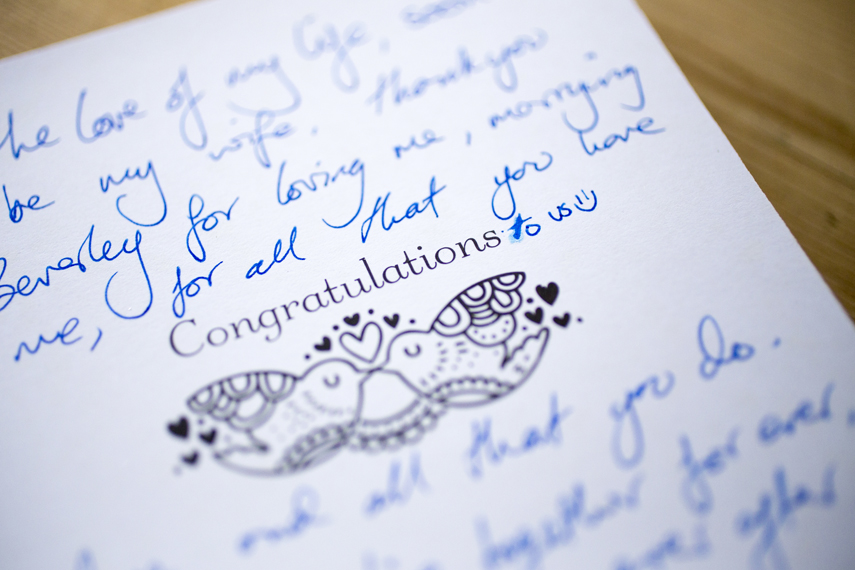 the love of my life, soon
be my wife. Thankyou
Beverley for loving me, marrying
me, for all that you have
Congratulations to us
and all that you do.
together for ever,
after